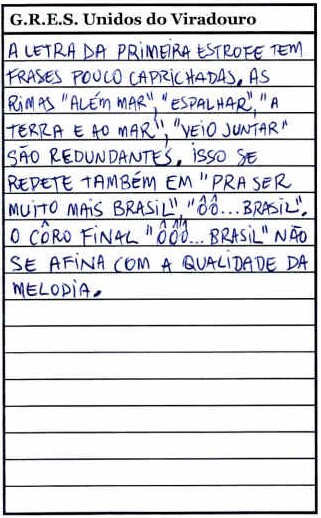 G.R.E.S. Unidos do Viradouro
A LETRA DA PRIMEIRA ESTROFE TEM
FRASES POUCO CAPRICHADAS. AS
RIMAS "ALÉM MAR", "ESPALHAR", "A
TERRA E AO MAR", "VEIO JUNTAR"
SÃO REDUNDANTES. ISSO SE
REPETE TAMBÉM EM "PRA SER
MUITO MAIS BRASIL", "ÔÔ... BRASIL".
O CÔRO FINAL "ÔÔÔ... BRASIL" NÃO
SE AFINA COM A QUALIDADE DA
MELODIA.